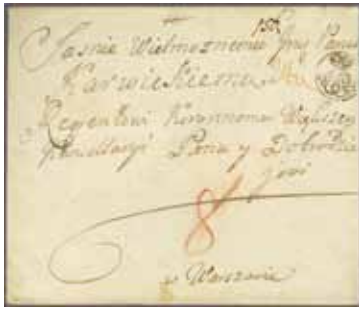 Jasnie Wielmoznemu Jmę Panu
Karwickiemu
Regentowi Koronnemu Większey
Kancellaryi Panu y Dobrodzie
jowi
8
w Warszawie